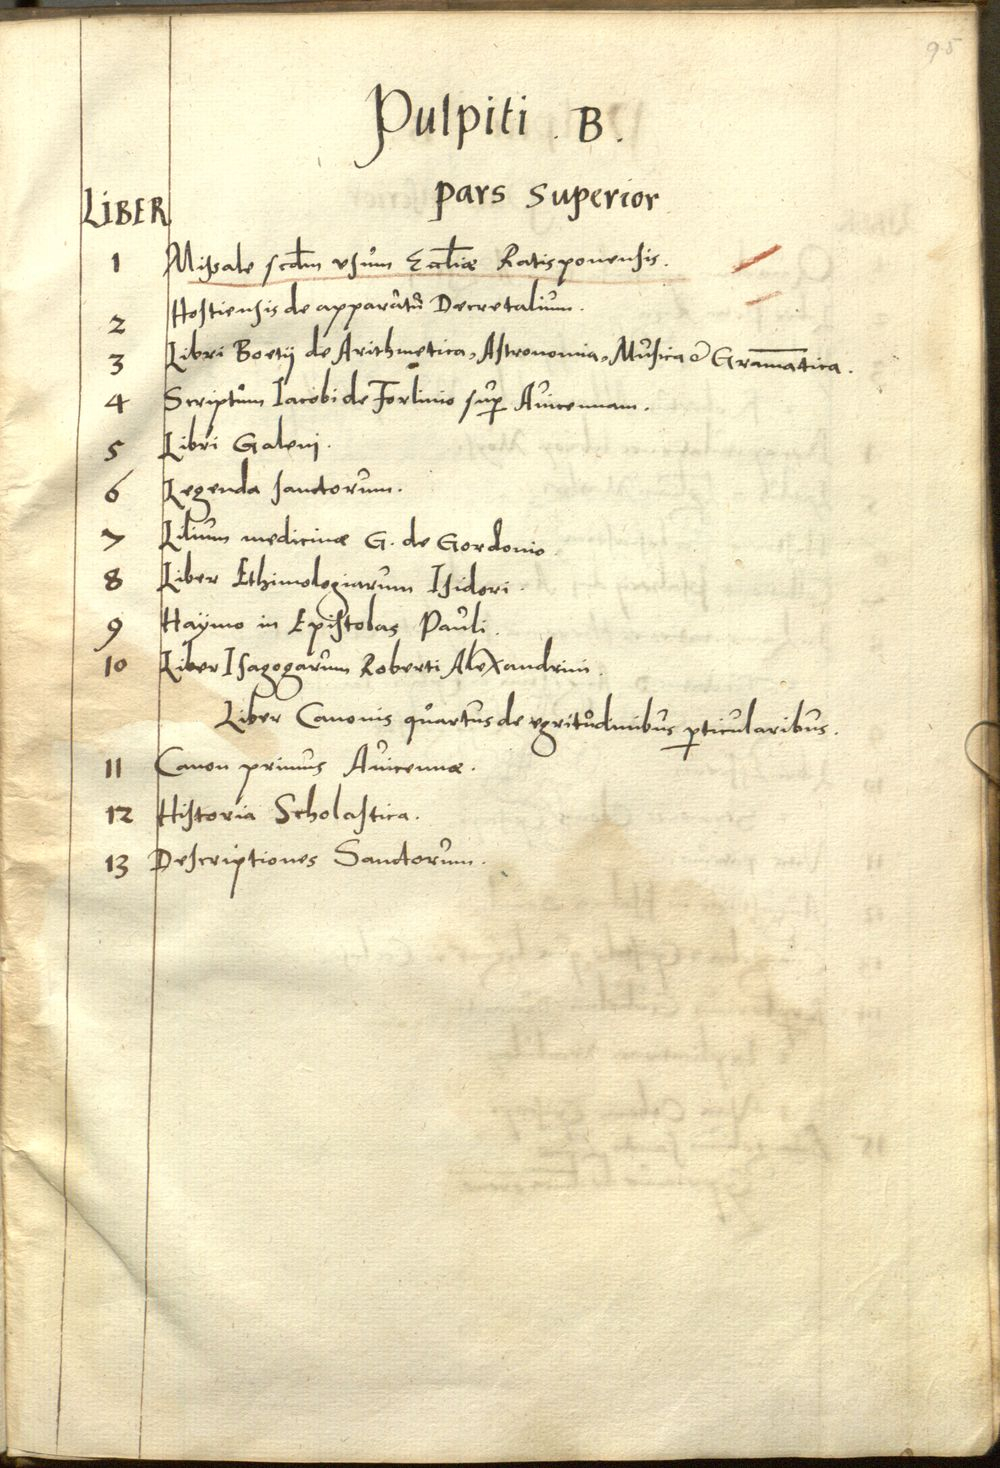 95
Pulpiti . B .
pars superior
LIBER
1 Missale scdm usum Eccliæ Ratisponensis.
2 Hostiensis de apparatu Decretalium.
3 Libri Boetij de Arithmetica, Astronomia, Musica & Gramatica.
4 Scriptum Iacobi de Forlinio sup Auicennam.
5 Libri Galenj.
6 Legenda sanctorum.
7 Lilium medicinæ G. de Gordonio
8 Liber Ethimologiarum Isidori.
9 Haymo in Epistolas Pauli.
10 Liber Isagogarum Roberti Alexandrini.
Liber Canonis quartus de egritudinibus pticularibus.
11 Canon primus Auicennæ.
12 Historia Scholastica.
13 Descriptiones Sanctorum.